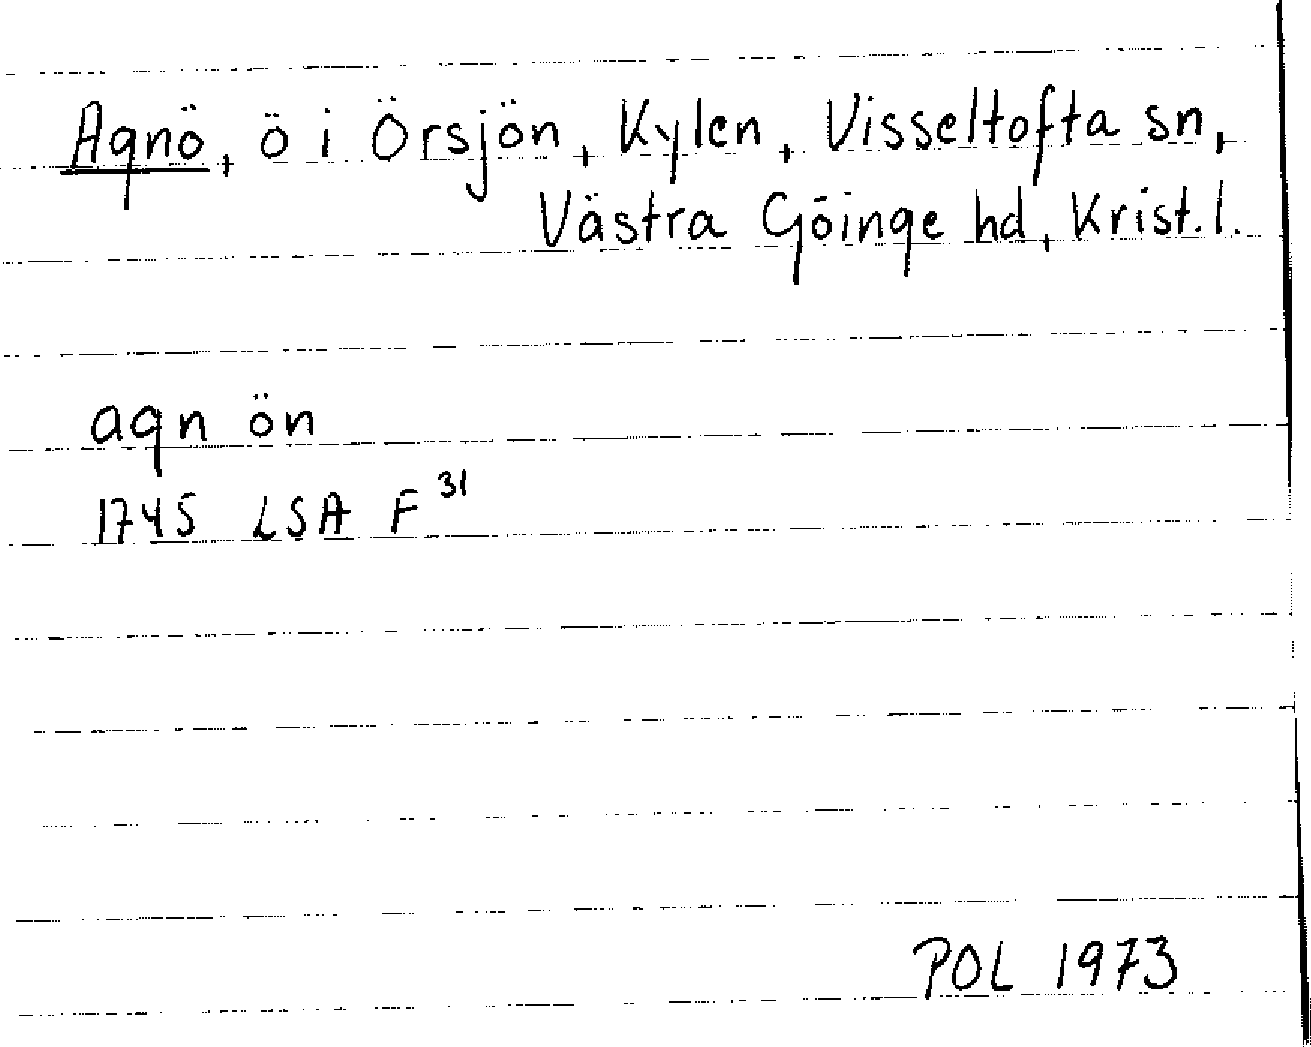 Agnö, ö i Örsjön, Kylen, Visseltofta sn,
Västra Göinge hd, Krist. l.
agn ön
1745 LSA F 31
POL 1973